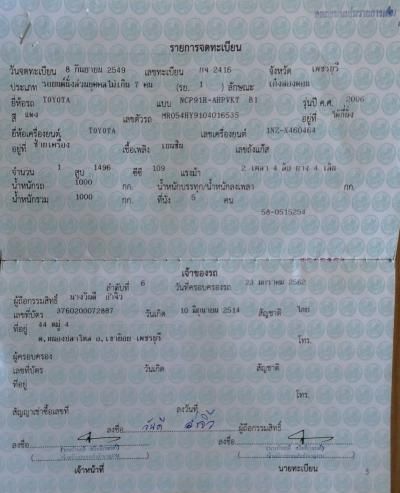 รายการจดทะเบียน
วันจดทะเบียน 8 กันยายน 2549 เลขทะเบียน กจ 2416 จังหวัด เพชรบุรี
ประเภท รถยนต์นั่งส่วนบุคคลไม่เกิน 7 คน (รย. 1 ) ลักษณะ เก๋งสองตอน
ยี่ห้อรถ TOYOTA แบบ NCP91R-AHPVKT 81 รุ่นปี ค.ศ. 2006
สี แดง เลขตัวรถ MR054HY9104016535 อยู่ที่ ใต้ที่นั่ง
ยี่ห้อเครื่องยนต์ TOYOTA เลขเครื่องยนต์ 1NZ-X460464
อยู่ที่ ซ้ายเครื่อง เชื้อเพลิง เบนซิน เลขถังแก๊ส
จำนวน 1 สูบ 1496 ซีซี 109 แรงม้า 2 เพลา 4 ล้อ ยาง 4 เส้น
น้ำหนักรถ 1000 กก. น้ำหนักบรรทุก/น้ำหนักลงเพลา กก.
น้ำหนักรวม 1000 กก. ที่นั่ง 5 คน
58-0515254
เจ้าของรถ
ลำดับที่ 6 วันที่ครอบครองรถ 23 มกราคม 2562
ผู้ถือกรรมสิทธิ์ นางวันดี
เลขที่บัตร 3760200072887 วันเกิด 10 มิถุนายน 2514 สัญชาติ ไทย
ที่อยู่ 44 หมู่ 4
ต.หนองปลาไหล อ.เขาย้อย เพชรบุรี โทร.
ผู้ครอบครอง
เลขที่บัตร วันเกิด สัญชาติ
ที่อยู่
โทร.
สัญญาเช่าซื้อเลขที่ ลงวันที่
ลงชื่อ วันดี ผู้ถือกรรมสิทธิ์
ลงชื่อ ลงชื่อ
เจ้าหน้าที่ นายทะเบียน
5